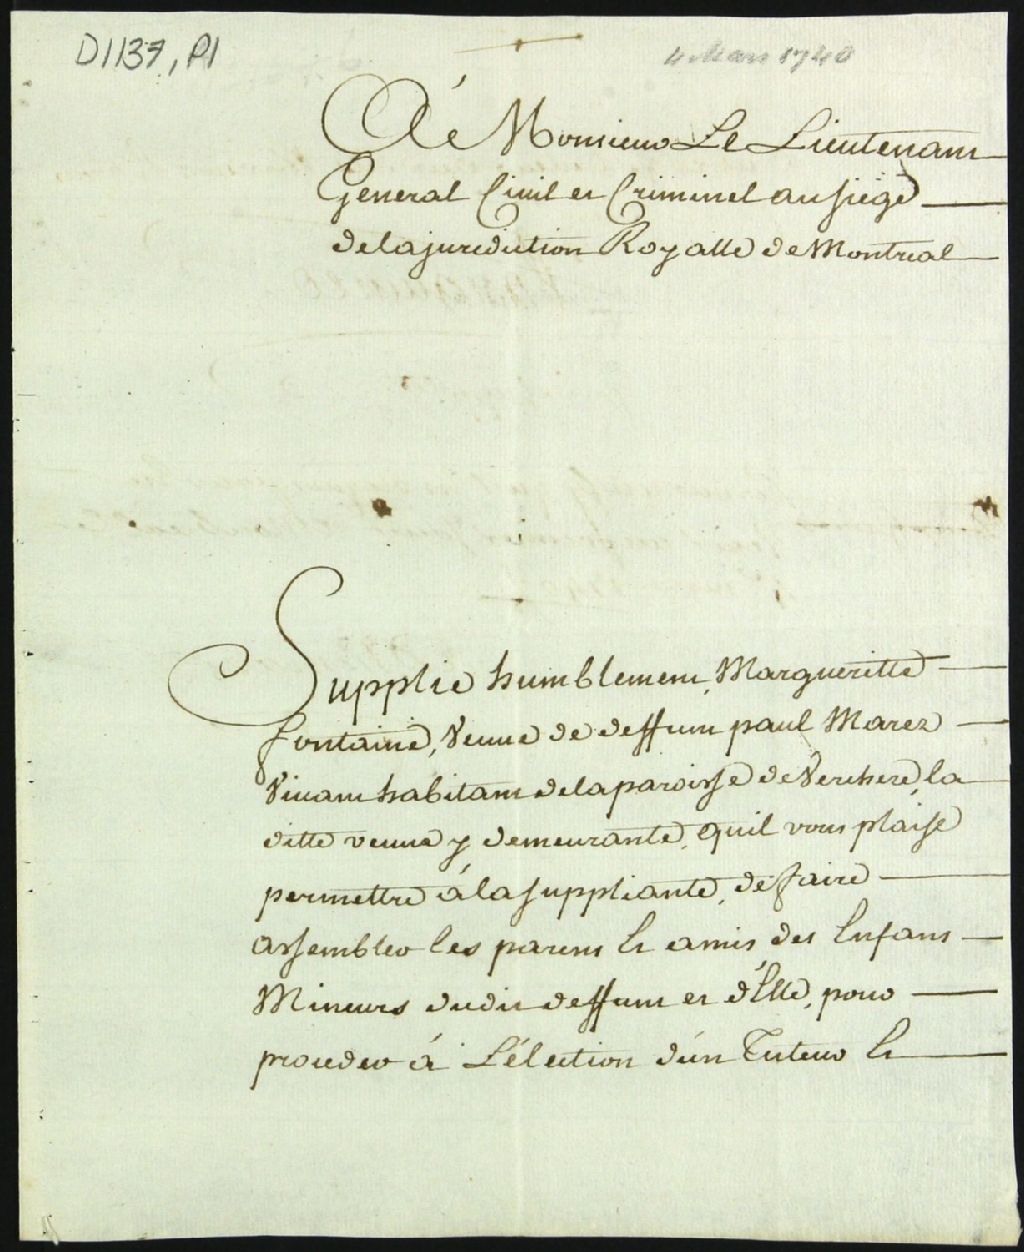 D1137, P1
4 Mars 1740
A Monsieur Le Lieutenant
General Civil et Criminel au siege
de la jurediction Royalle de Montreal
Supplie humblement, Margueritte
fontaine, veuve de deffunt paul Marez
vivant habitant de la paroisse de Verchere, la
ditte veuve y demeurante, quil vous plaise
permettre á la suppliante, de faire
assembler les parens Et amis des Enfans
Mineurs dudit deffunt et d'Elle, pour
proceder á L'élection d'un Tuteur Et